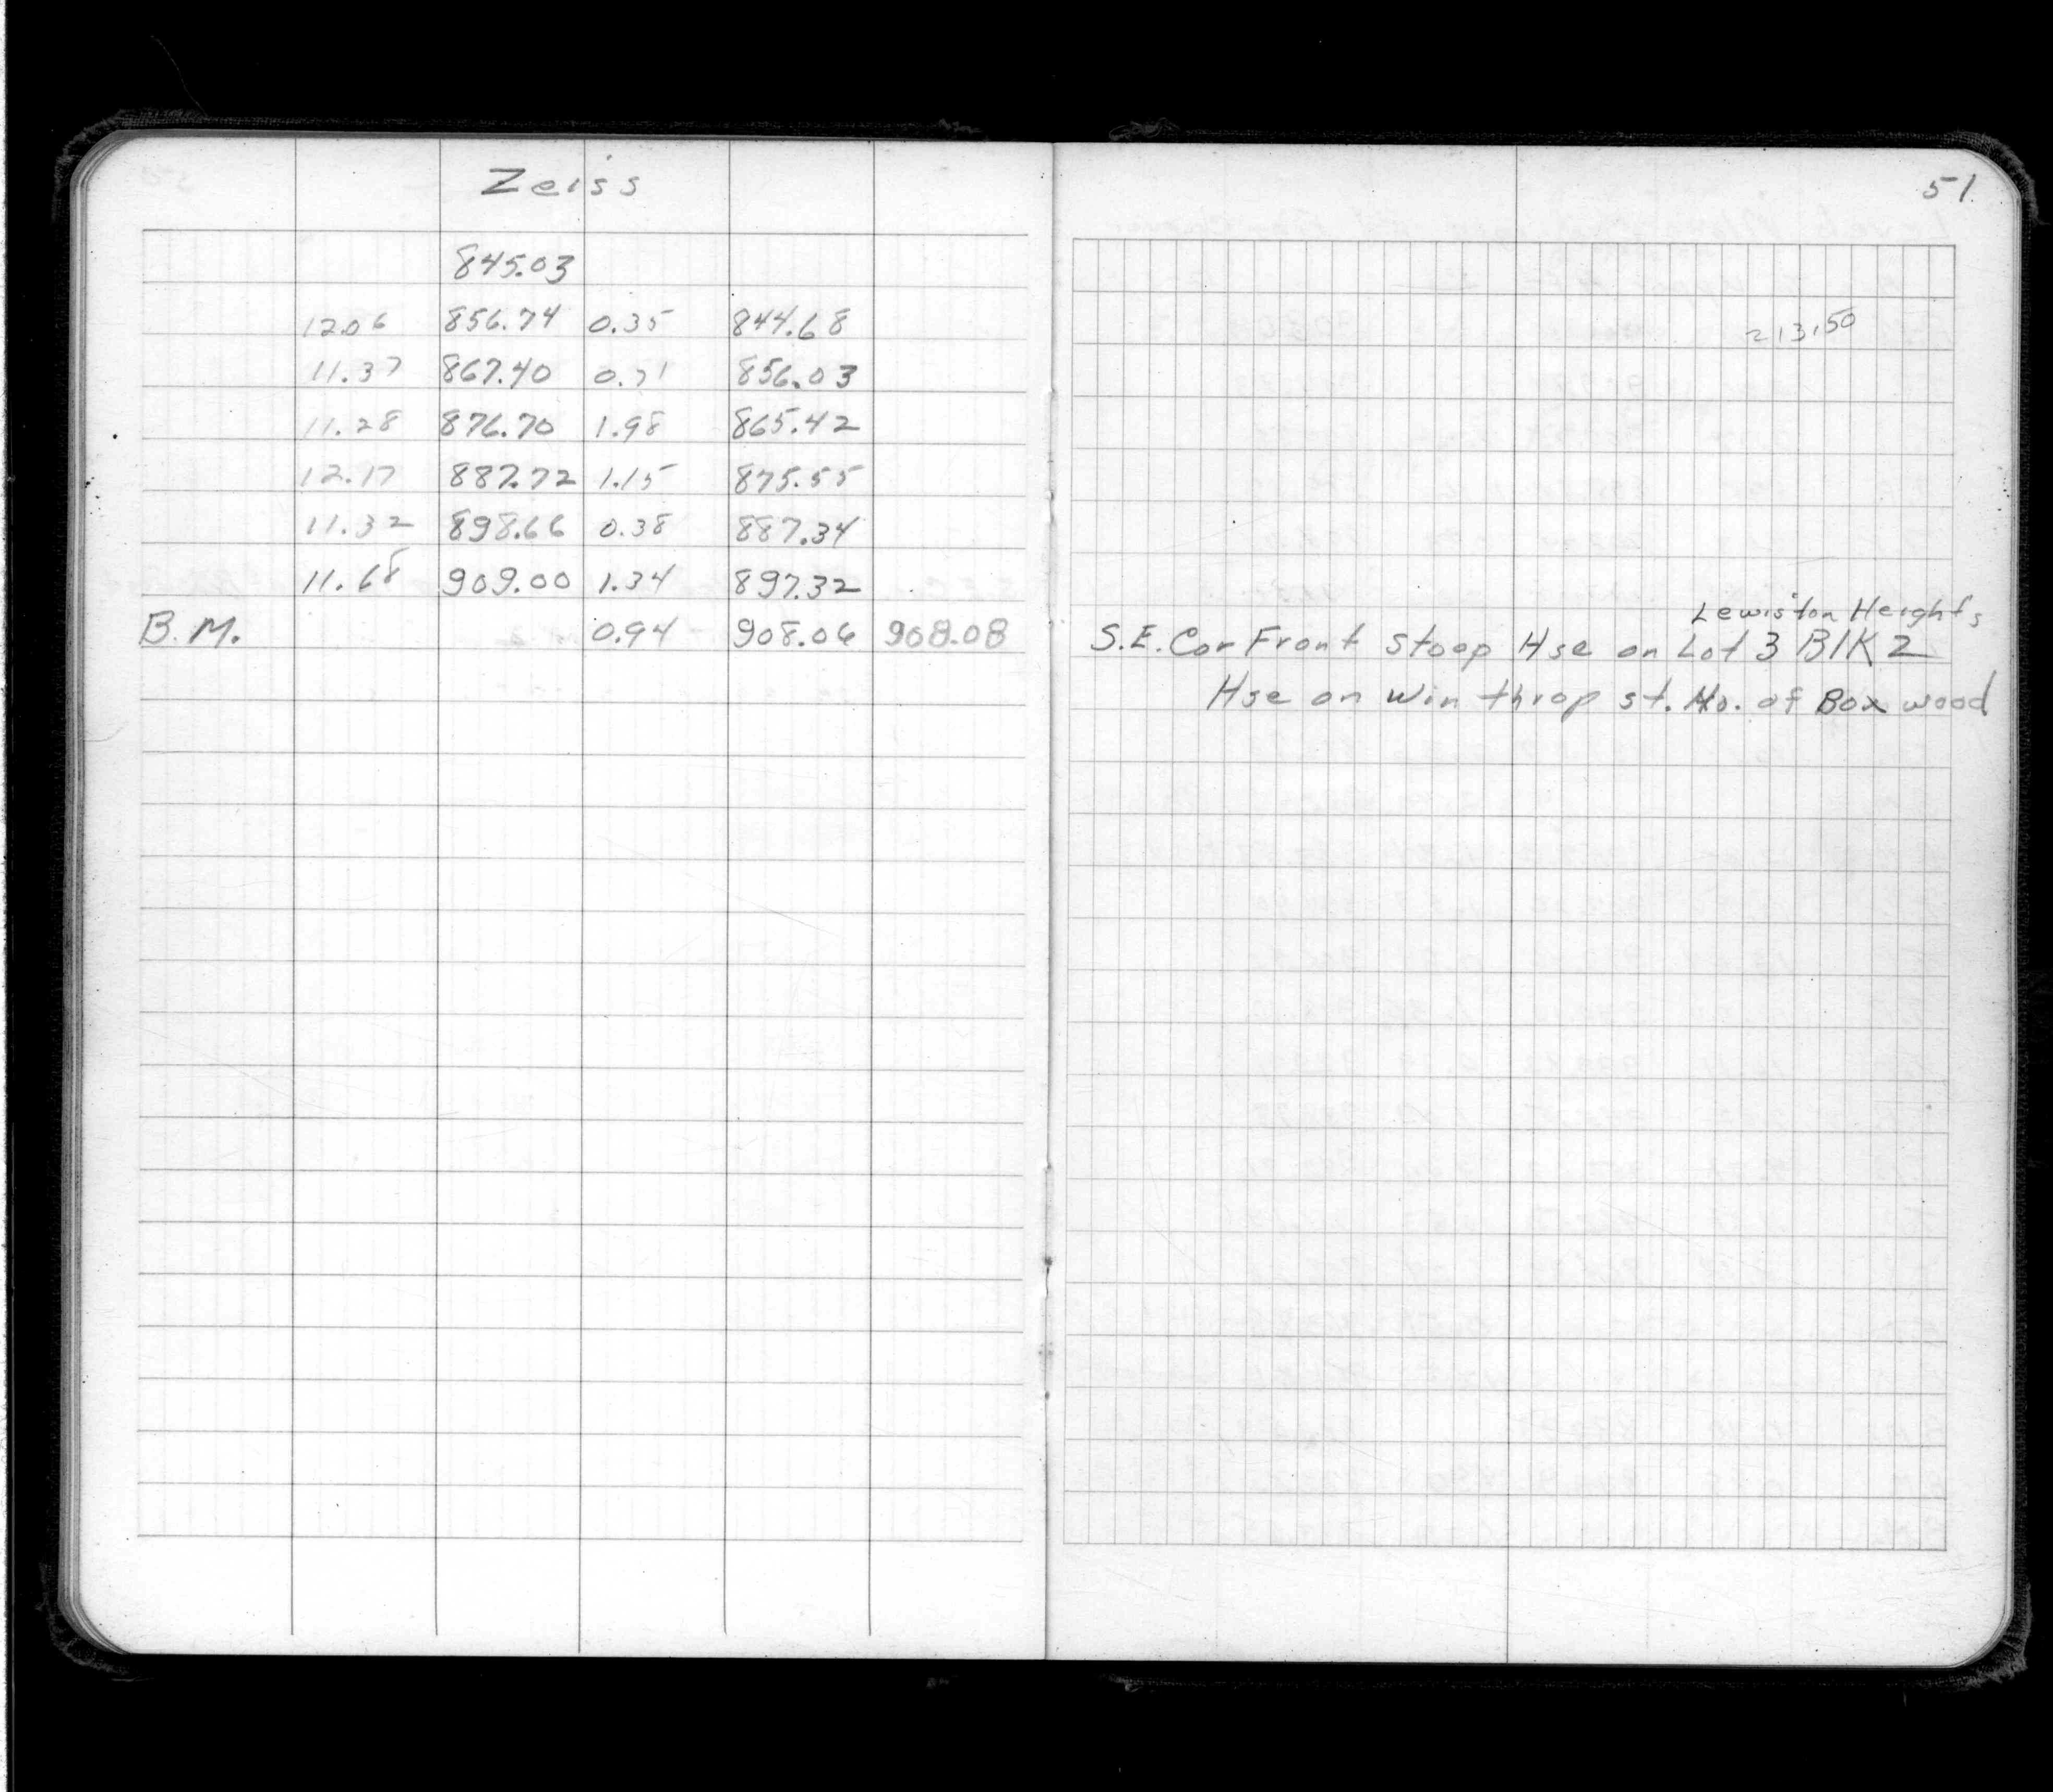 Zeiss
51
845.03
12.06 856.74 0.35 844.68
213.50
11.37 867.40 0.71 856.03
11.28 876.70 1.98 865.42
12.17 887.72 1.15 875.55
11.32 898.66 0.38 887.34
11.68 909.00 1.34 897.32
Lewiston Heights
B.M. 0.94 908.06 908.08 S.E. Cor Front Stoop Hse on Lot 3 Blk 2
Hse on Winthrop st. No. of Boxwood